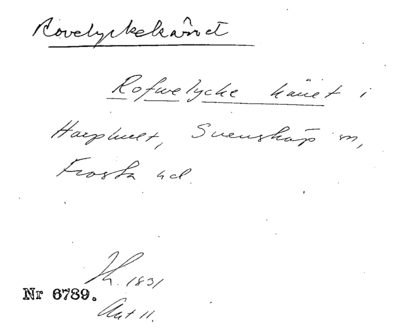 Rovelyckekärret
Rofwelycke käret i
Harphult, Svensköp sn,
Frosta hd.
1831
Nr 6789.
Akt 11.